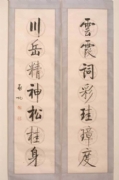 雲霞詞彩珪璋度
川岳精神松柱身